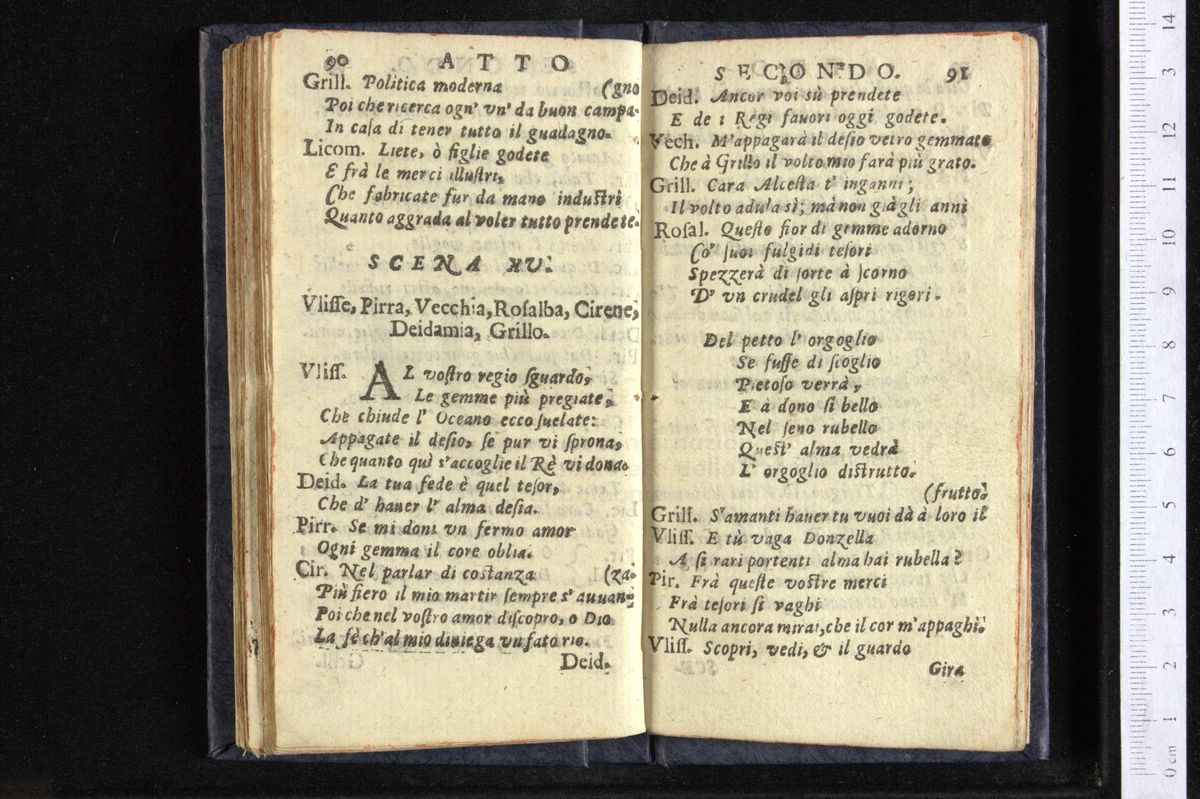 90 ATTO
Grill. Politica moderna (gno
Poi che ricerca ogn' vn' da buon campa-
In casa di tener tutto il guadagno.
Licom. Liete, ò figlie godete
E frà le merci illustri,
Che fabricate fur da mano industri
Quanto aggrada al voler tutto prendete.
SCENA XV.
Vlisse, Pirra, Vecchia, Rosalba, Cirene,
Deidamia, Grillo.
Vliss. AL vostro regio sguardo,
Le gemme più pregiate,
Che chiude l' Oceano ecco suelate:
Appagate il desio, se pur vi sprona,
Che quanto quì s'accoglie il Rè vi dona.
Deid. La tua fede è quel tesor,
Che d' hauer l' alma desia.
Pirr. Se mi doni vn fermo amor
Ogni gemma il core oblia.
Cir. Nel parlar di costanza (za.
Più fiero il mio martir sempre s' auuan-
Poi che nel vostro amor discopro, o Dio
La fè ch'al mio diniega vn fato rio.
Deid.
SECONDO. 91
Deid. Ancor voi sù prendete
E de i Regi fauori oggi godete.
Vech. M'appagarà il desio vetro gemmato
Che à Grillo il volto mio farà più grato.
Grill. Cara Alcesta t' inganni;
Il volto adula sì; mà non già gli anni
Rosal. Questo fior di gemme adorno
Co' suoi fulgidi tesori
Spezzerà di sorte à scorno
D' vn crudel gli aspri rigori.
Del petto l' orgoglio
Se fusse di scoglio
Pietoso verrà,
E à dono sì bello
Nel seno rubello
Quest' alma vedrà
L' orgoglio distrutto.
(frutto.
Grill. S'amanti hauer tu vuoi dà à loro il
Vliss. E tù vaga Donzella
A sì rari portenti alma hai rubella?
Pir. Frà queste vostre merci
Frà tesori sì vaghi
Nulla ancora mirai, che il cor m'appaghi.
Vliss. Scopri, vedi, & il guardo
Gira
0 cm 1 2 3 4 5 6 7 8 9 10 11 12 13 14